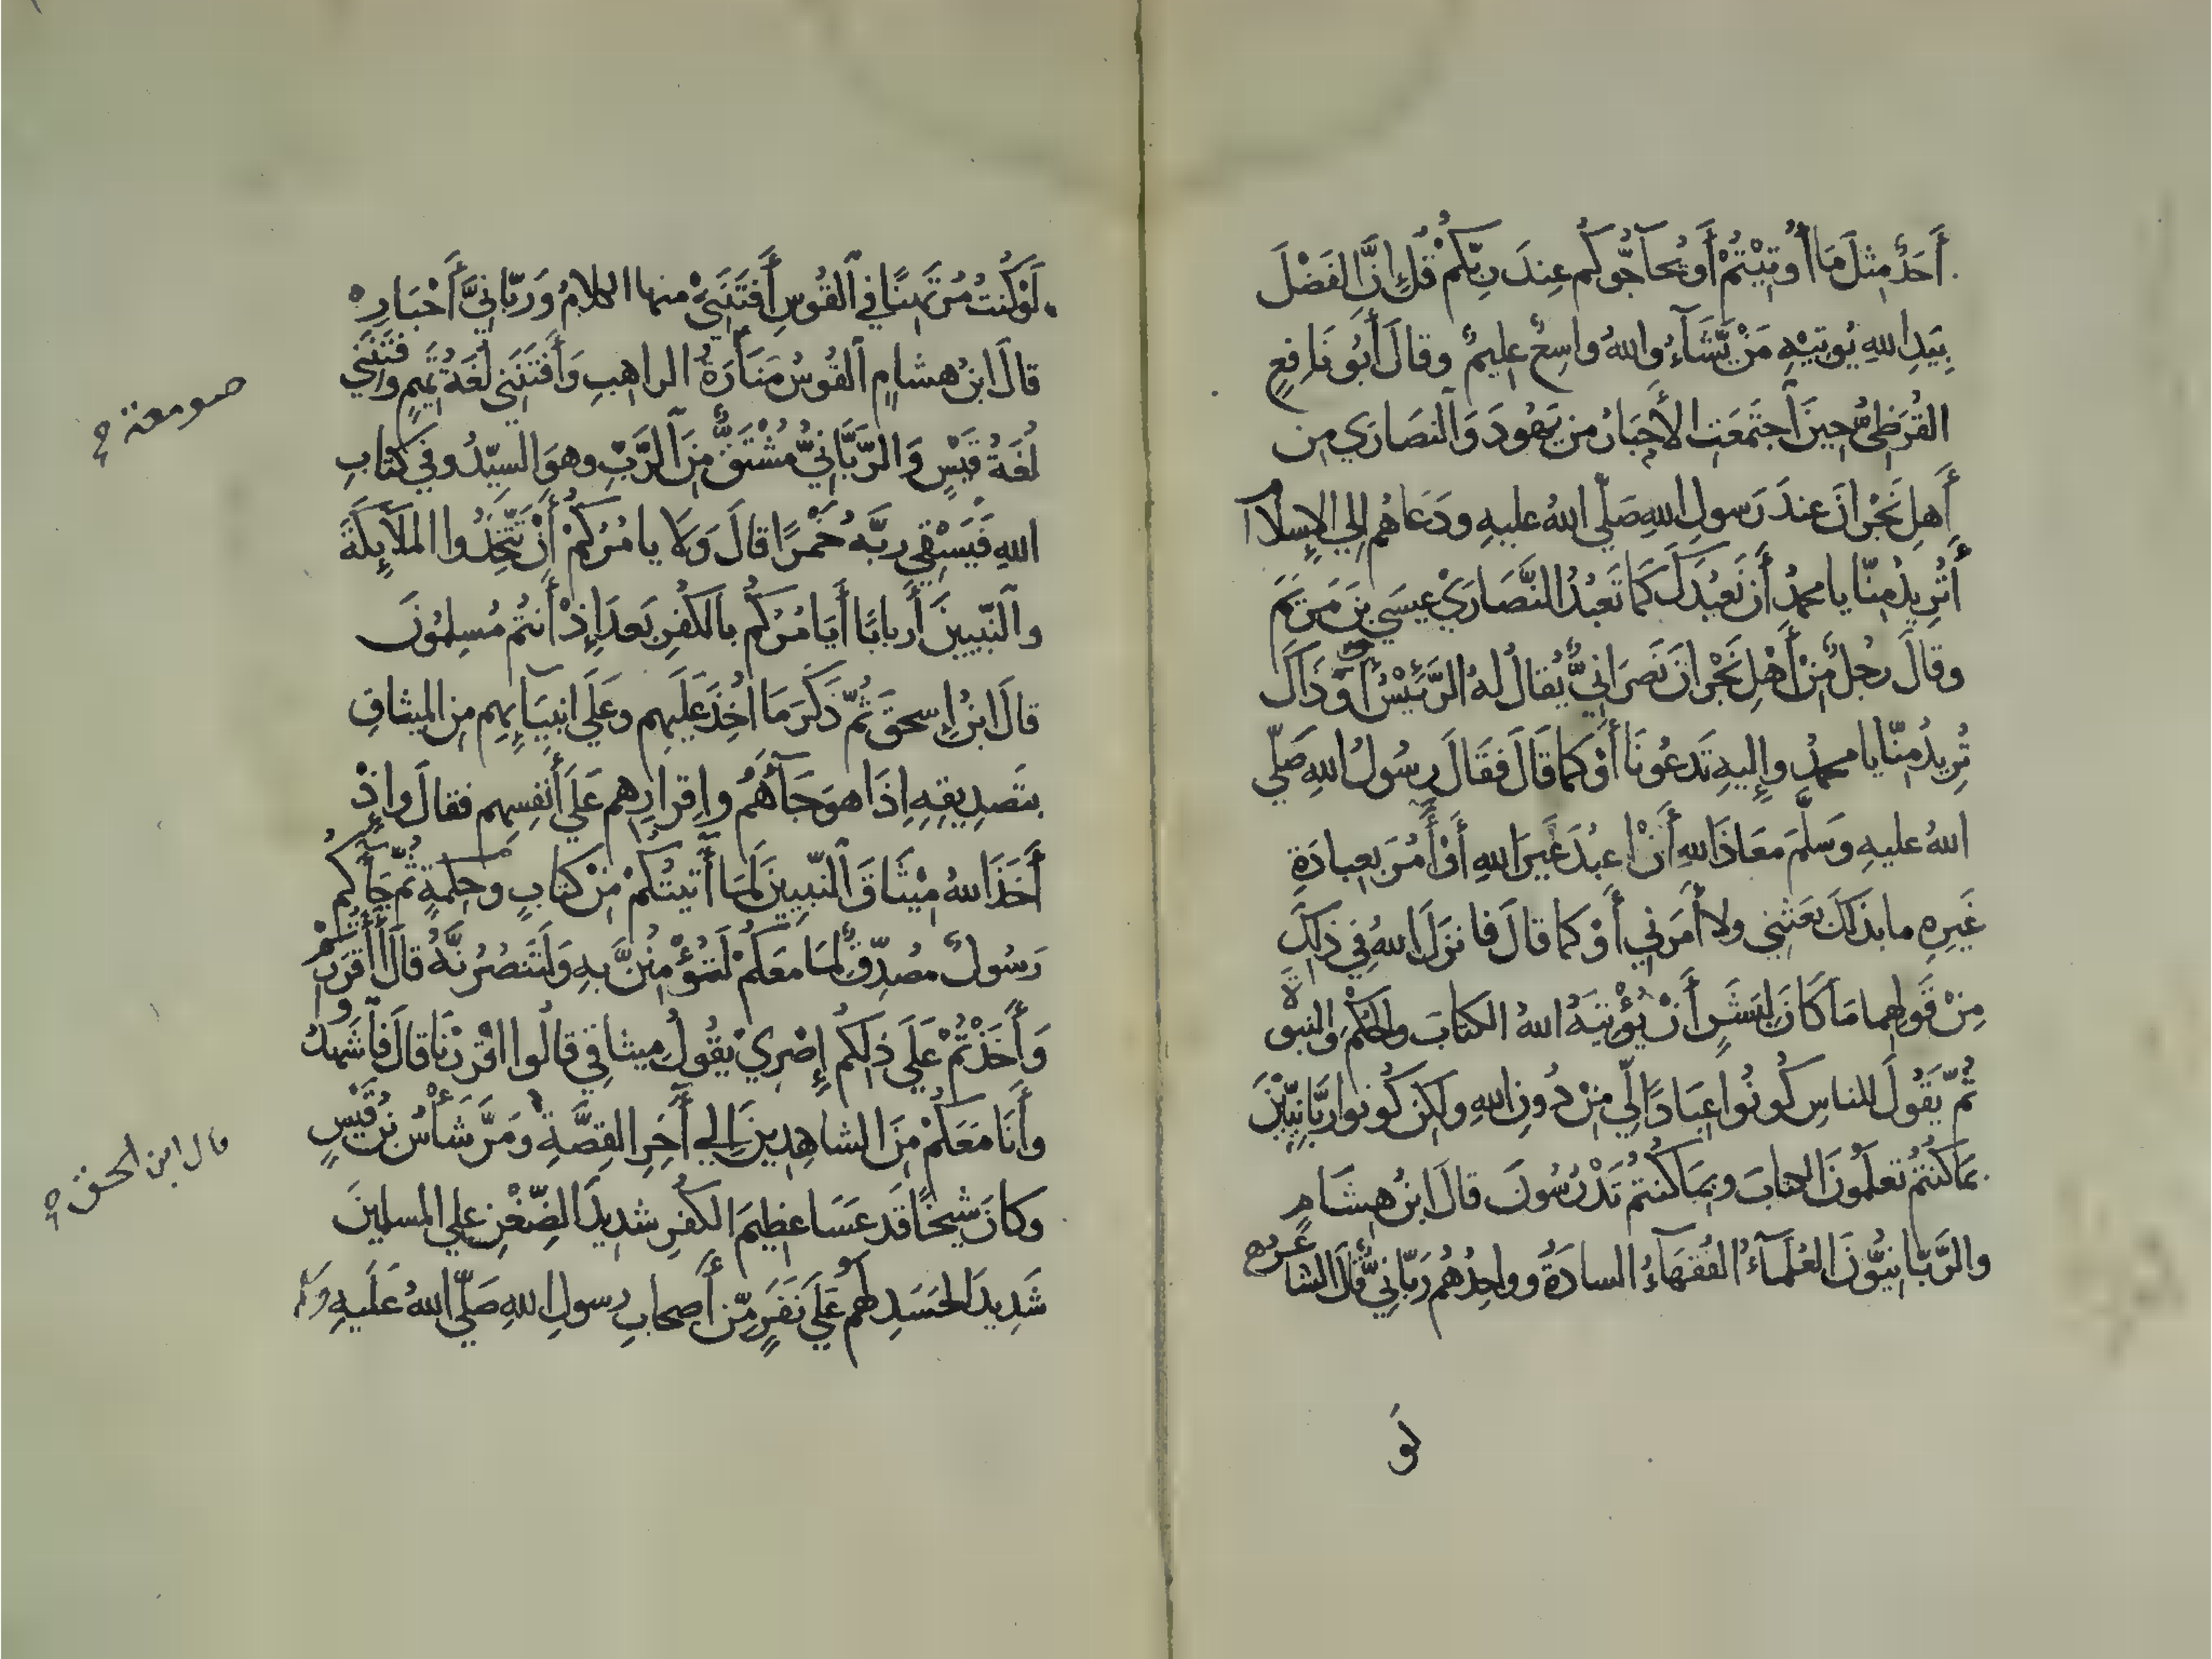 أَحَدٌ مِثْلَ مَا أُوتِيتُمْ أَوْ يُحَآجُّوكُم عِندَ رَبِّكُمْ قُلْ إِنَّ الفَضْلَ
بِيَدِ اللهِ يُوتِيهِ مَنْ يَّشَآءُ واللهُ واسِعٌ عليمٌ وقالَ أَبُو نَافِعٍ
القُرَظِيُّ حِينَ اَجتَمَعَتِ الأَحبَارُ من يَهُودَ وَالنصَارَي مِن
أَهلِ نَجْرانَ عندَ رَسولِ اللهِ صَلّي اللهُ عليهِ ودَعَاهُم إلي الإسلام
أَتُرِيدُ مِنّا يا محمدُ أَن نَعبُدَكَ كَمَا تَعبُدُ النَّصَارَيْ عِيسَي بنَ مَريَمَ
وقالَ رجُلٌ مِنْ أَهْلِ نَجْرانَ نَصرَانِيٌّ يُقالُ لهُ الرَّئِيْسُ أَوَ ذَاكَ
تُرِيدُ مِنّا يا محمدُ وإليهِ تَدعُونَا أَوْ كما قَالَ فقَالَ رسُولُ اللهِ صَلّي
اللهُ عليهِ وَسَلَّمَ مَعَاذَ اللهِ أَنْ اعبُدَ غَيرَ اللهِ أَوْ أَمُرَ بعِبادَةِ
غَيرِهِ ما بذَلكَ بَعَثَنِي ولا أَمَرَنِي أَوْ كما قالَ فانزَلَ اللهُ فِي ذلِكَ
مِنْ قَولِهما مَا كَانَ لِبَشَرٍ أَنْ يُؤْتِيَهُ اللهُ الكتابَ والحُكْمَ والنبوة
ثُمّ يَقُولَ للناسِ كُونُوا عِبَادًا لّي مِنْ دُونِ اللهِ ولكنْ كُونوا رَبَّانِيِّيْنَ
بمَا كُنتُمْ تَعلَمُونَ الكتابَ وبمَا كُنتُمْ تَدْرُسُونَ قالَ ابنُ هِشَامٍ
والرَّبّانِيُّونَ العُلَمَآءُ الفُقَهَاءُ السادَةُ وواحِدُهُم رَبّانِيٌّ قالَ الشاعرُ
لَو
لَوْ كُنتُ مُرْتَهِنًا فِي القُوسِ أَفتَنَنِيْ منها الكلامُ وَرَبّانِيَّ أَحْبَارِ
قالَ ابنُ هشامٍ القُوسُ مَنَارَةُ الراهبِ وَأَفتَنَنِي لُغَةُ تَمِيمٍ وفَتَنَنِي
لُغَةُ قَيْسٍ وَالرَّبَّانِيُّ مُشْتَقٌّ مِنَ الرَّبِّ وهوَ السيّدُ وفي كتابِ
اللهِ فَيَسْقِي رَبَّهُ خَمْرًا قالَ وَلا يامُرُكُمْ أَنْ تَتَّخِذُوا المَلآئِكَةَ
والنّبِيينَ أربابًا أَيَامُرُكُم بالكُفرِ بَعدَ إِذْ أَنتُم مُسلِمُونَ
قالَ ابنُ إسحقَ ثُمّ ذَكَرَ مَا أُخِذَ عَلَيهم وعَلَي انبِيَآئِهِم مِن الميثاقِ
بتَصدِيقِهِ إِذَا هوَ جَآءَهُمْ وإقرارِهِم عَلَي أَنفُسِهِم فقالَ وإذْ
أَخَذَ اللهُ مِيْثَاقَ النّبِيينَ لَمَا آتَيتُكُمْ مِنْ كتابٍ وَحكمةٍ ثُمّ جَآءَكُم
رَسُولٌ مصَدِّقٌ لّمَا مَعَكُمْ لَتُؤْمِنُنَّ بهِ وَلَتَنصُرُنَّهُ قالَ أَأَقرَرْتُمْ
وَأَخَذْتُمْ عَلَي ذلِكُم إِصْرِيْ يقُولُ مِيثاقِي قالُوا اقْرَرْنَا قالَ فاشهَدُوا
وأَنَا مَعَكُمْ مِنَ الشاهِدِينَ إلي آخِرِ القِصَّةِ ومَرَّ شَأْسُ بنُ قَيْسٍ
وكانَ شَيخًا قَد عَسَا عظِيمَ الكُفرِ شدِيدَ الضِّغْنِ علي المسلمينَ
شَدِيدَ الحَسَدِ لَهُم عَلَي نَفَرٍ مِّن أَصحابِ رسولِ اللهِ صَلّي اللهُ عَلَيهِ وسلم
صومعة
قال ابن اسحق